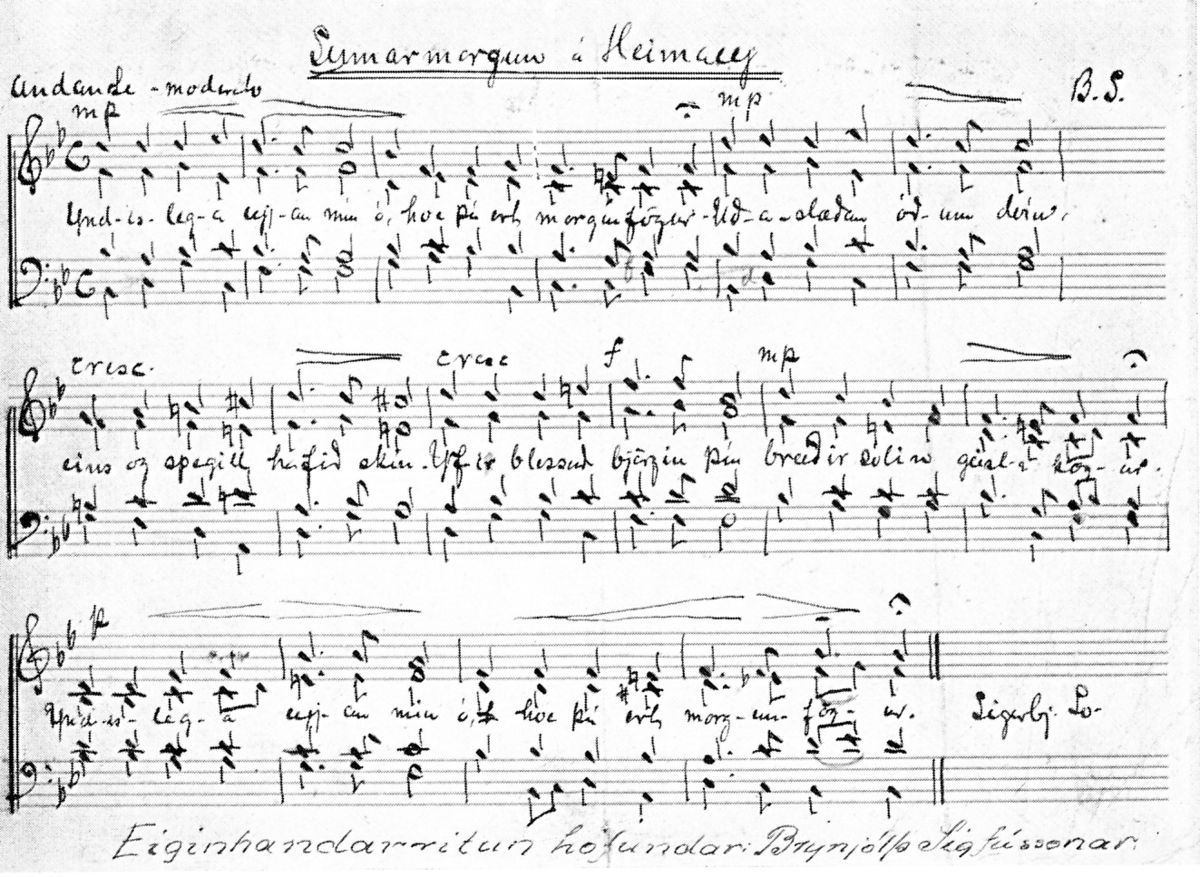 Sumarmorgun á Heimaey
Andante - moderato
B.S.
mp
mp
Ynd-is-leg-a eyj-an mín ó, hve þú ert morgunfögur. Úð-a-slæðan óð-um dvín,
cresc.
cresc
f
mp
eins og spegill hafið skín. Yf-ir blessuð björgin þín breiðir sólin geisl-a kög-ur.
p
Ynd-is-leg-a eyj-an mín ó, hve þú ert morg-un-fög-ur.
Sigurbj. Sv.
Eiginhandarritun höfundar: Brynjólfs Sigfússonar.